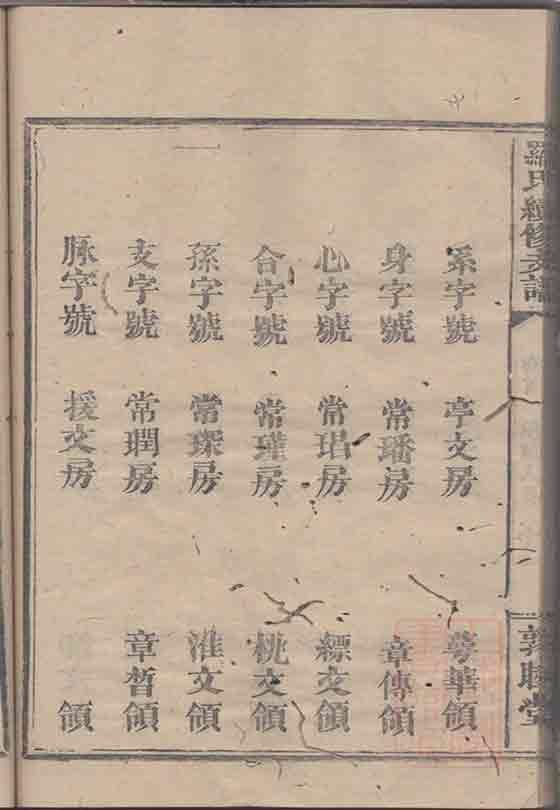 羅氏續修支譜
敦睦堂
系字號 亭文房 蕚華領
身字號 常璠房 章傳領
心字號 常琩房 縹文領
合字號 常瑾房 桃文領
孫字號 常琛房 淮文領
支字號 常琄房 章晳領
脉字號 援文房 領